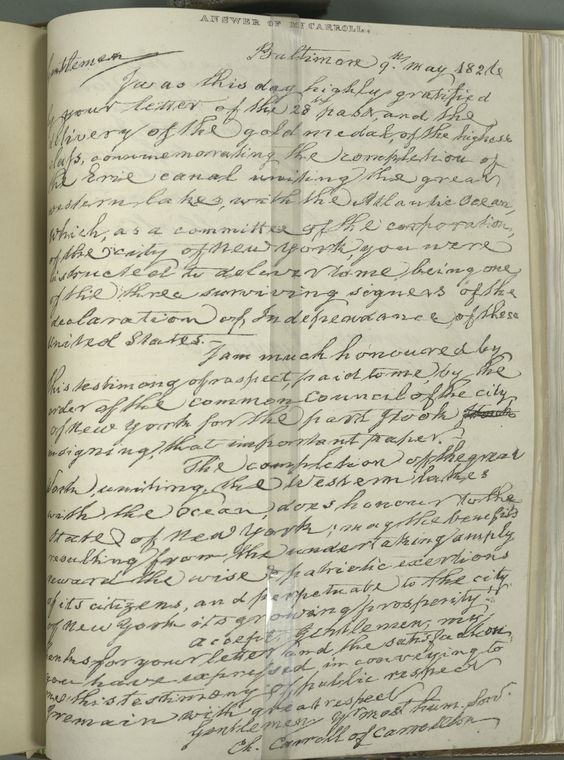 ANSWER OF MR CARROLL.
Baltimore 9th May 1826
Gentlemen
I was this day highly gratified
by your letter of the 28th past, and the
delivery of the gold medal, of the highest
class, commemorating the completion of
the Erie canal uniting the great
western lakes, with the Atlantic Ocean,
which, as a committee of the corporation,
of the city of New York you were
instructed to deliver to me, being one
of the three surviving signers of the
declaration of Independance of these
United States.—
I am much honoured by
this testimony of respect, paid to me, by the
order of the common council of the city
of New York for the part I took
in signing, that important paper.
The completion of the great
work, uniting, the Western lakes
with the Ocean, does honour to the
State of New York; may the benefits
resulting from, the undertaking amply
reward the wise & patriotic exertions
of its citizens, and perpetuate to the city
of New York its growing prosperity
accept, Gentlemen, my
thanks for your letter and the satisfaction
you have expressed in conveying to
me this testimony of public respect
I remain with great respect
Gentlemen Yr most hum. Servt.
Ch. Carroll of Carrollton.